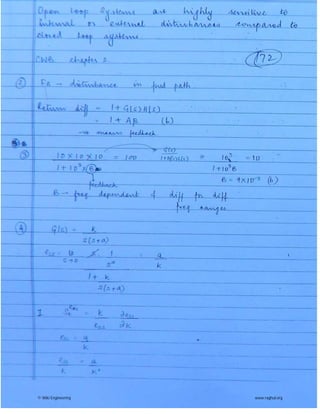 Open loop systems are highly sensitive to
internal or external disturbances compared to
closed loop systems.
CWB chapter 2.
72
② FR → disturbance in fwd path
Return diff = 1 + G(s)H(s)
= 1 + AB (b)
→ means feedback
③ 10 × 10 × 10 / 1 + 10³ × B = 100 G(s) / 1+G(s)H(s) = 10³ / 1 + 10³B = 10
feedback B = 9×10⁻² (b)
B → freq dependent of diff for diff
freq ranges
④ G(s) = k / s(s+a)
ess = s 1/s² / 1 + k / s(s+a) = a / k
s→0
I = k / ess ∂ess / ∂k
ess = a / k
ess / k = a / k²
© Wiki Engineering
www.raghul.org